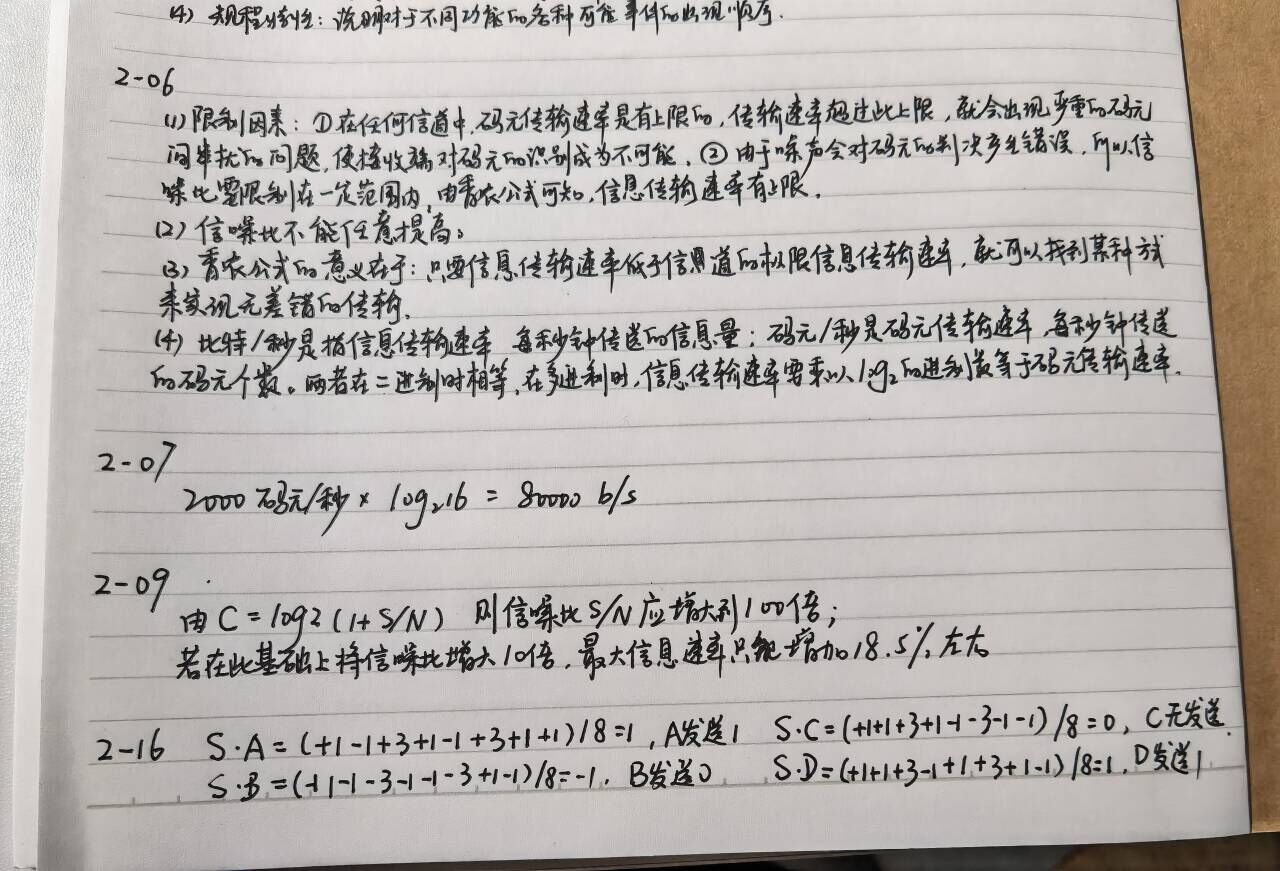 (4) 规程特性：说明对于不同功能的各种可能事件的出现顺序.
2-06
(1) 限制因素：①在任何信道中,码元传输速率是有上限的，传输速率超过此上限，就会出现严重的码元
间串扰的问题，使接收端对码元的识别成为不可能，②由于噪声会对码元的判决产生错误，所以信
噪比需限制在一定范围内，由香农公式可知，信息传输速率有上限.
(2) 信噪比不能任意提高。
(3) 香农公式的意义在于：只要信息传输速率低于信道的极限信息传输速率，就可以找到某种方式
来实现无差错的传输.
(4) 比特/秒是指信息传输速率 每秒钟传送的信息量；码元/秒是码元传输速率 每秒钟传送
的码元个数。两者在二进制时相等，在多进制时，信息传输速率要乘以log2的进制数等于码元传输速率.
2-07
2000码元/秒 × log₂16 = 80000 b/s
2-09
由 C = log2 (1+ S/N) 则信噪比S/N应增大到100倍；
若在此基础上将信噪比增大10倍，最大信息速率只能增加18.5%左右
2-16 S·A = (+1-1+3+1-1+3+1+1)/8=1, A发送1 S·C=(+1+1+3+1-1-3-1-1)/8=0, C无发送.
S·B = (+1-1-3-1-1-3+1-1)/8=-1. B发送0 S·D=(+1+1+3-1+1+3+1-1)/8=1. D发送1